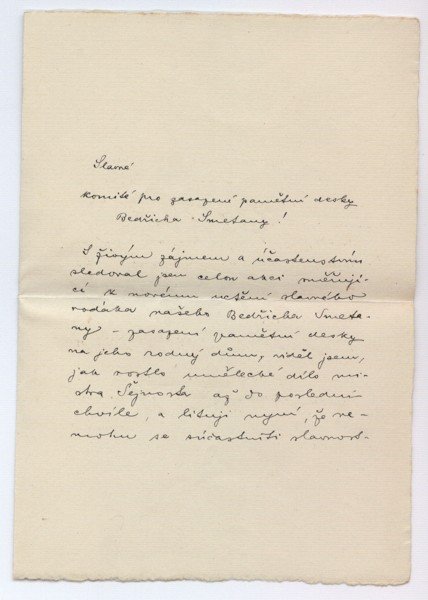 Slavné
komité pro zasazení pamětní desky
Bedřicha Smetany!
S živým zájmem a účastenstvím
sledoval jsem celou akci směřují-
cí k novému uctění slavného
rodáka našeho Bedřicha Smeta-
ny – zasazení pamětní desky
na jeho rodný dům, viděl jsem,
jak rostlo umělecké dílo mi-
stra Šejnosta až do poslední
chvíle, a lituji nyní, že ne-
mohu se súčastniti slavnost-